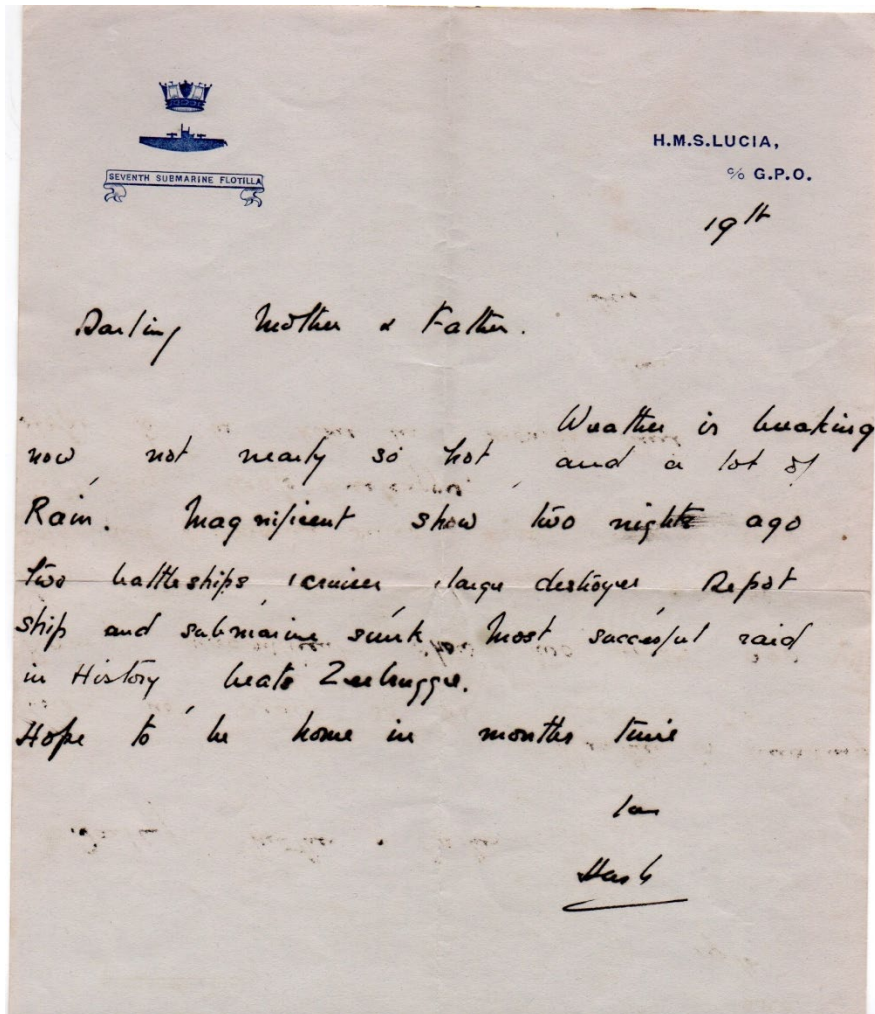 SEVENTH SUBMARINE FLOTILLA
H.M.S.LUCIA,
c/o G.P.O.
19th
Darling Mother & Father.
Weather is breaking
now, not nearly so hot, and a lot of
Rain. Magnificent show two nights ago
two battleships, 1 cruiser, 1 large destroyer Depot
ship and submarine sunk. Most succesful raid
in History beats Zeebrugge.
Hope to be home in months time
Ian